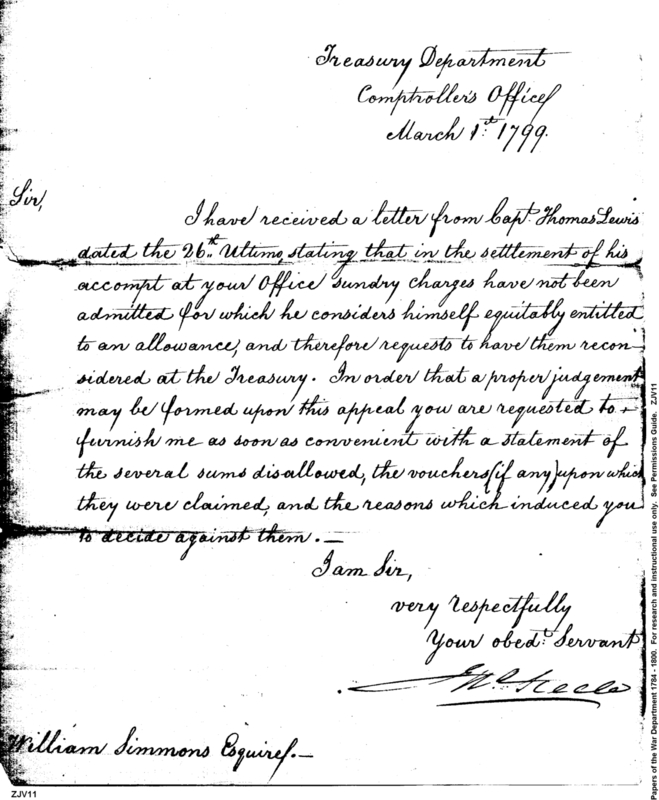 Treasury Department
Comptroller's Office
March 1st. 1799.
Sir,
I have received a letter from Capt. Thomas Lewis
dated the 26th. Ultimo stating that in the settlement of his
accompt at your Office sundry charges have not been
admitted for which he considers himself equitably entitled
to an allowance, and therefore requests to have them recon-
sidered at the Treasury. In order that a proper judgement
may be formed upon this appeal you are requested to
furnish me as soon as convenient with a statement of
the several sums disallowed, the vouchers (if any) upon which
they were claimed, and the reasons which induced you
to decide against them. —
I am Sir,
very respectfully
Your obedt. Servant
Jno. Steele
William Simmons Esquire. —
ZJV11
Papers of the War Department 1784 - 1800. For research and instructional use only. See Permissions Guide. ZJV11